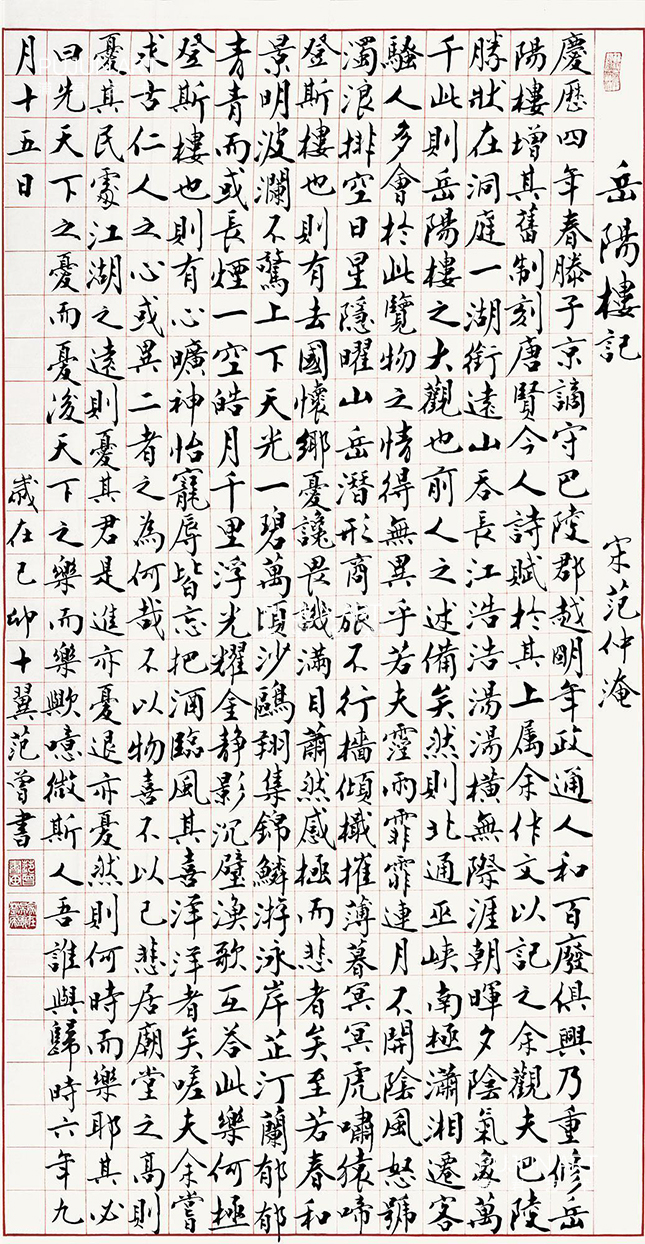 岳陽樓記 宋范仲淹
慶歷四年春滕子京謫守巴陵郡越明年政通人和百廢俱興乃重修岳
陽樓增其舊制刻唐賢今人詩賦於其上属余作文以記之余觀夫巴陵
勝狀在洞庭一湖銜遠山吞長江浩浩湯湯橫無際涯朝暉夕陰氣象萬
千此則岳陽樓之大觀也前人之述備矣然則北通巫峽南極瀟湘遷客
騷人多會於此覽物之情得無異乎若夫霪雨霏霏連月不開陰風怒號
濁浪排空日星隱曜山岳潛形商旅不行檣傾檝摧薄暮冥冥虎嘯猿啼
登斯樓也則有去國懷鄉憂讒畏譏滿目蕭然感極而悲者矣至若春和
景明波瀾不驚上下天光一碧萬頃沙鷗翔集錦鱗游泳岸芷汀蘭郁郁
青青而或長煙一空皓月千里浮光耀金静影沉璧漁歌互答此樂何極
登斯樓也則有心曠神怡寵辱皆忘把酒臨風其喜洋洋者矣嗟夫余嘗
求古仁人之心或異二者之為何哉不以物喜不以己悲居廟堂之高則
憂其民處江湖之遠則憂其君是進亦憂退亦憂然則何時而樂耶其必
曰先天下之憂而憂後天下之樂而樂歟噫微斯人吾誰與歸時六年九
月十五日 歲在己卯十翼范曾書